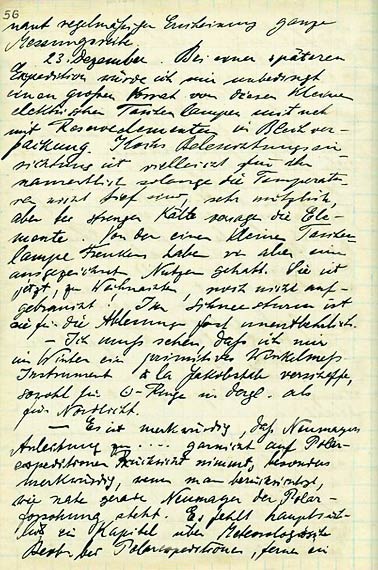 56
naut regelmäßiger Erscheinung ganze
Messungsreihe.
23. Dezember. Bei einer späteren
Expedition würde ich mir unbedingt
einen großen Vorrat von diesen kleinen
elektrischen Taschenlampen mitneh
mit Reserveelementen in Blechver-
packung. Kleins
ist vielleicht für den
namentlich solange die Temperatu-
ren nicht tief sind, sehr nützlich,
aber bei strenger Kälte versagen die Ele-
mente. Von der einen kleinen Taschen-
lampe Freuchens haben wir aber einen
ausgezeichneten Nutzen gehabt. Sie ist
jetzt, zu Weihnachten, noch nicht auf-
gebraucht! Im Schneesturm ist
sie für die Ablesung fast unentbehrlich.
– Ich muß sehen, daß ich mir
im Winter ein primitives Winkelmeß-
Instrument à la Jakobstab verschaffe,
sowohl für ⊙-Ringe u. dergl. als
für Nordlicht.
— Es ist merkwürdig, daß Neumayers
Anleitung zu .... garnicht auf Polar-
expeditionen Rücksicht nimmt, besonders
merkwürdig, wenn man berücksichtigt,
wie nahe gerade Neumayer der Polar-
forschung steht. Es fehlt hauptsäch-
lich ein Kapitel über Meteorologische
Beob. bei Polarexpeditionen, ferner ein